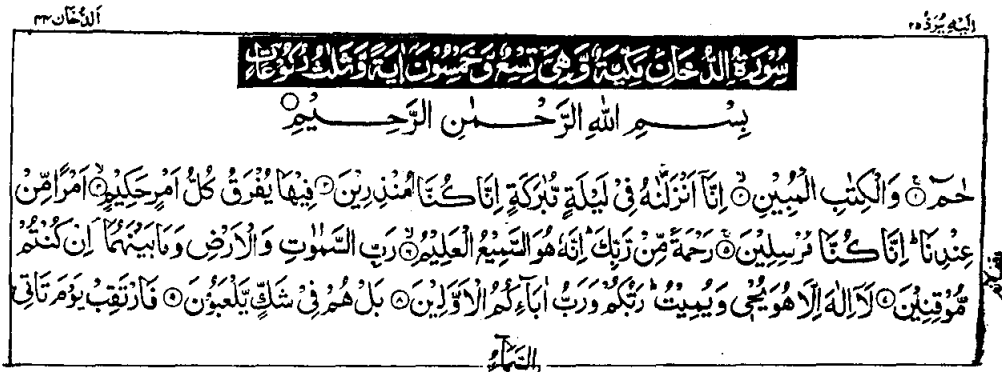 اِلَيْهِ يُرَدُّ ٢٥
اَلدُّخَان ٤٤
سُوْرَةُ الدُّخَانِ مَكِّيَّةٌ وَّهِىَ تِسْعٌ وَّخَمْسُوْنَ اٰيَةً وَّثَلٰثُ رُكُوْعَاتٍ
بِسْمِ اللهِ الرَّحْمٰنِ الرَّحِيْمِ ○
حٰمٓ ۝١ وَالْكِتٰبِ الْمُبِيْنِ ۝٢ اِنَّاۤ اَنْزَلْنٰهُ فِىْ لَيْلَةٍ مُّبٰرَكَةٍ اِنَّا كُنَّا مُنْذِرِيْنَ ۝٣ فِيْهَا يُفْرَقُ كُلُّ اَمْرٍ حَكِيْمٍ ۝٤ اَمْرًا مِّنْ
عِنْدِنَا ؕ اِنَّا كُنَّا مُرْسِلِيْنَ ۝٥ رَحْمَةً مِّنْ رَّبِّكَ ؕ اِنَّهٗ هُوَ السَّمِيْعُ الْعَلِيْمُ ۝٦ رَبِّ السَّمٰوٰتِ وَالْاَرْضِ وَمَا بَيْنَهُمَا ۘ اِنْ كُنْتُمْ
مُّوْقِنِيْنَ ۝٧ لَاۤ اِلٰهَ اِلَّا هُوَ يُحْيٖ وَيُمِيْتُ ؕ رَبُّكُمْ وَرَبُّ اٰبَآئِكُمُ الْاَوَّلِيْنَ ۝٨ بَلْ هُمْ فِىْ شَكٍّ يَّلْعَبُوْنَ ۝٩ فَارْتَقِبْ يَوْمَ تَاْتِى
السَّمَآءُ